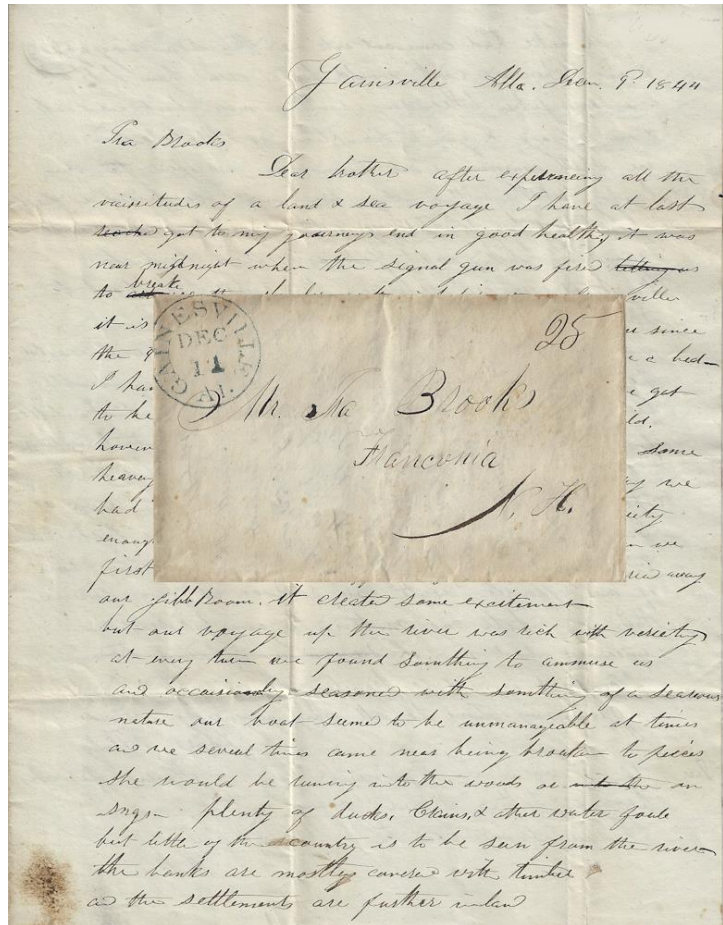 Gainsville Alla. Dec. 9. 1844
Ira Brooks
Dear brother after experincing all the
vicisitudes of a land & sea voyage I have at last
got to my journeys end in good health, it was
near midnight when the signal gun was fired
to breake
it is
since
the
a bed-
I ha
got
to he
ld.
haven
some
heavy
we
had
enoug
we
first
away
our Jibb Boom. it created some excitement
but our voyage up the river was rich with veriety
at every turn we found somthing to ammuse us
and occaisionly seasoned with somthing of a searious
nature our boat seemed to be unmanageable at times
and we several times came near being broaken to pieces
she would be runing into the woods or on
snags plenty of ducks, Crains, & other water foule
but little of the country is to be seen from the river
the banks are mostly covered with timber
and the settlements are further inland
GAINESVILLE
DEC
11
Al.
25
Mr. Ira Brooks
Franconia
N. H.